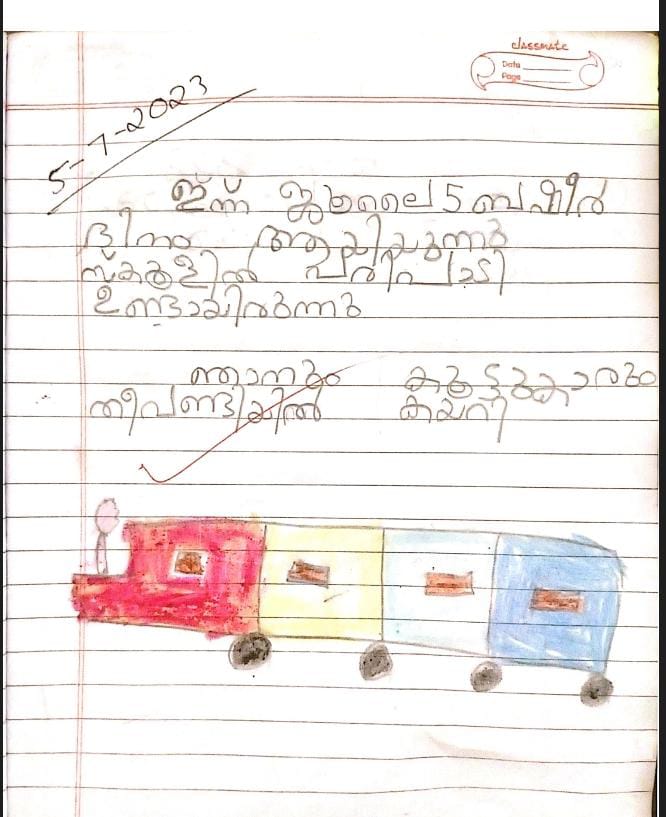 classmate
Date
Page
5-7-2023
ഇന്ന് ജൂലൈ 5 ബഷീർ
ദിനം ആയിയുന്നു
സ്കൂളിൽ പരിപാടി
ഉണ്ടായിരുന്നു
ഞാനും കൂട്ടുകാരും
തീപണ്ടിയിൽ കയറി